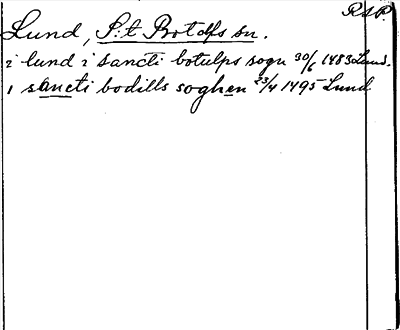 RAP.
Lund, S:t Botolfs sn.
i lund i sancti botulps sogn 30/6 1483 Lund.
i sancti bodills soghen 23/4 1495 Lund